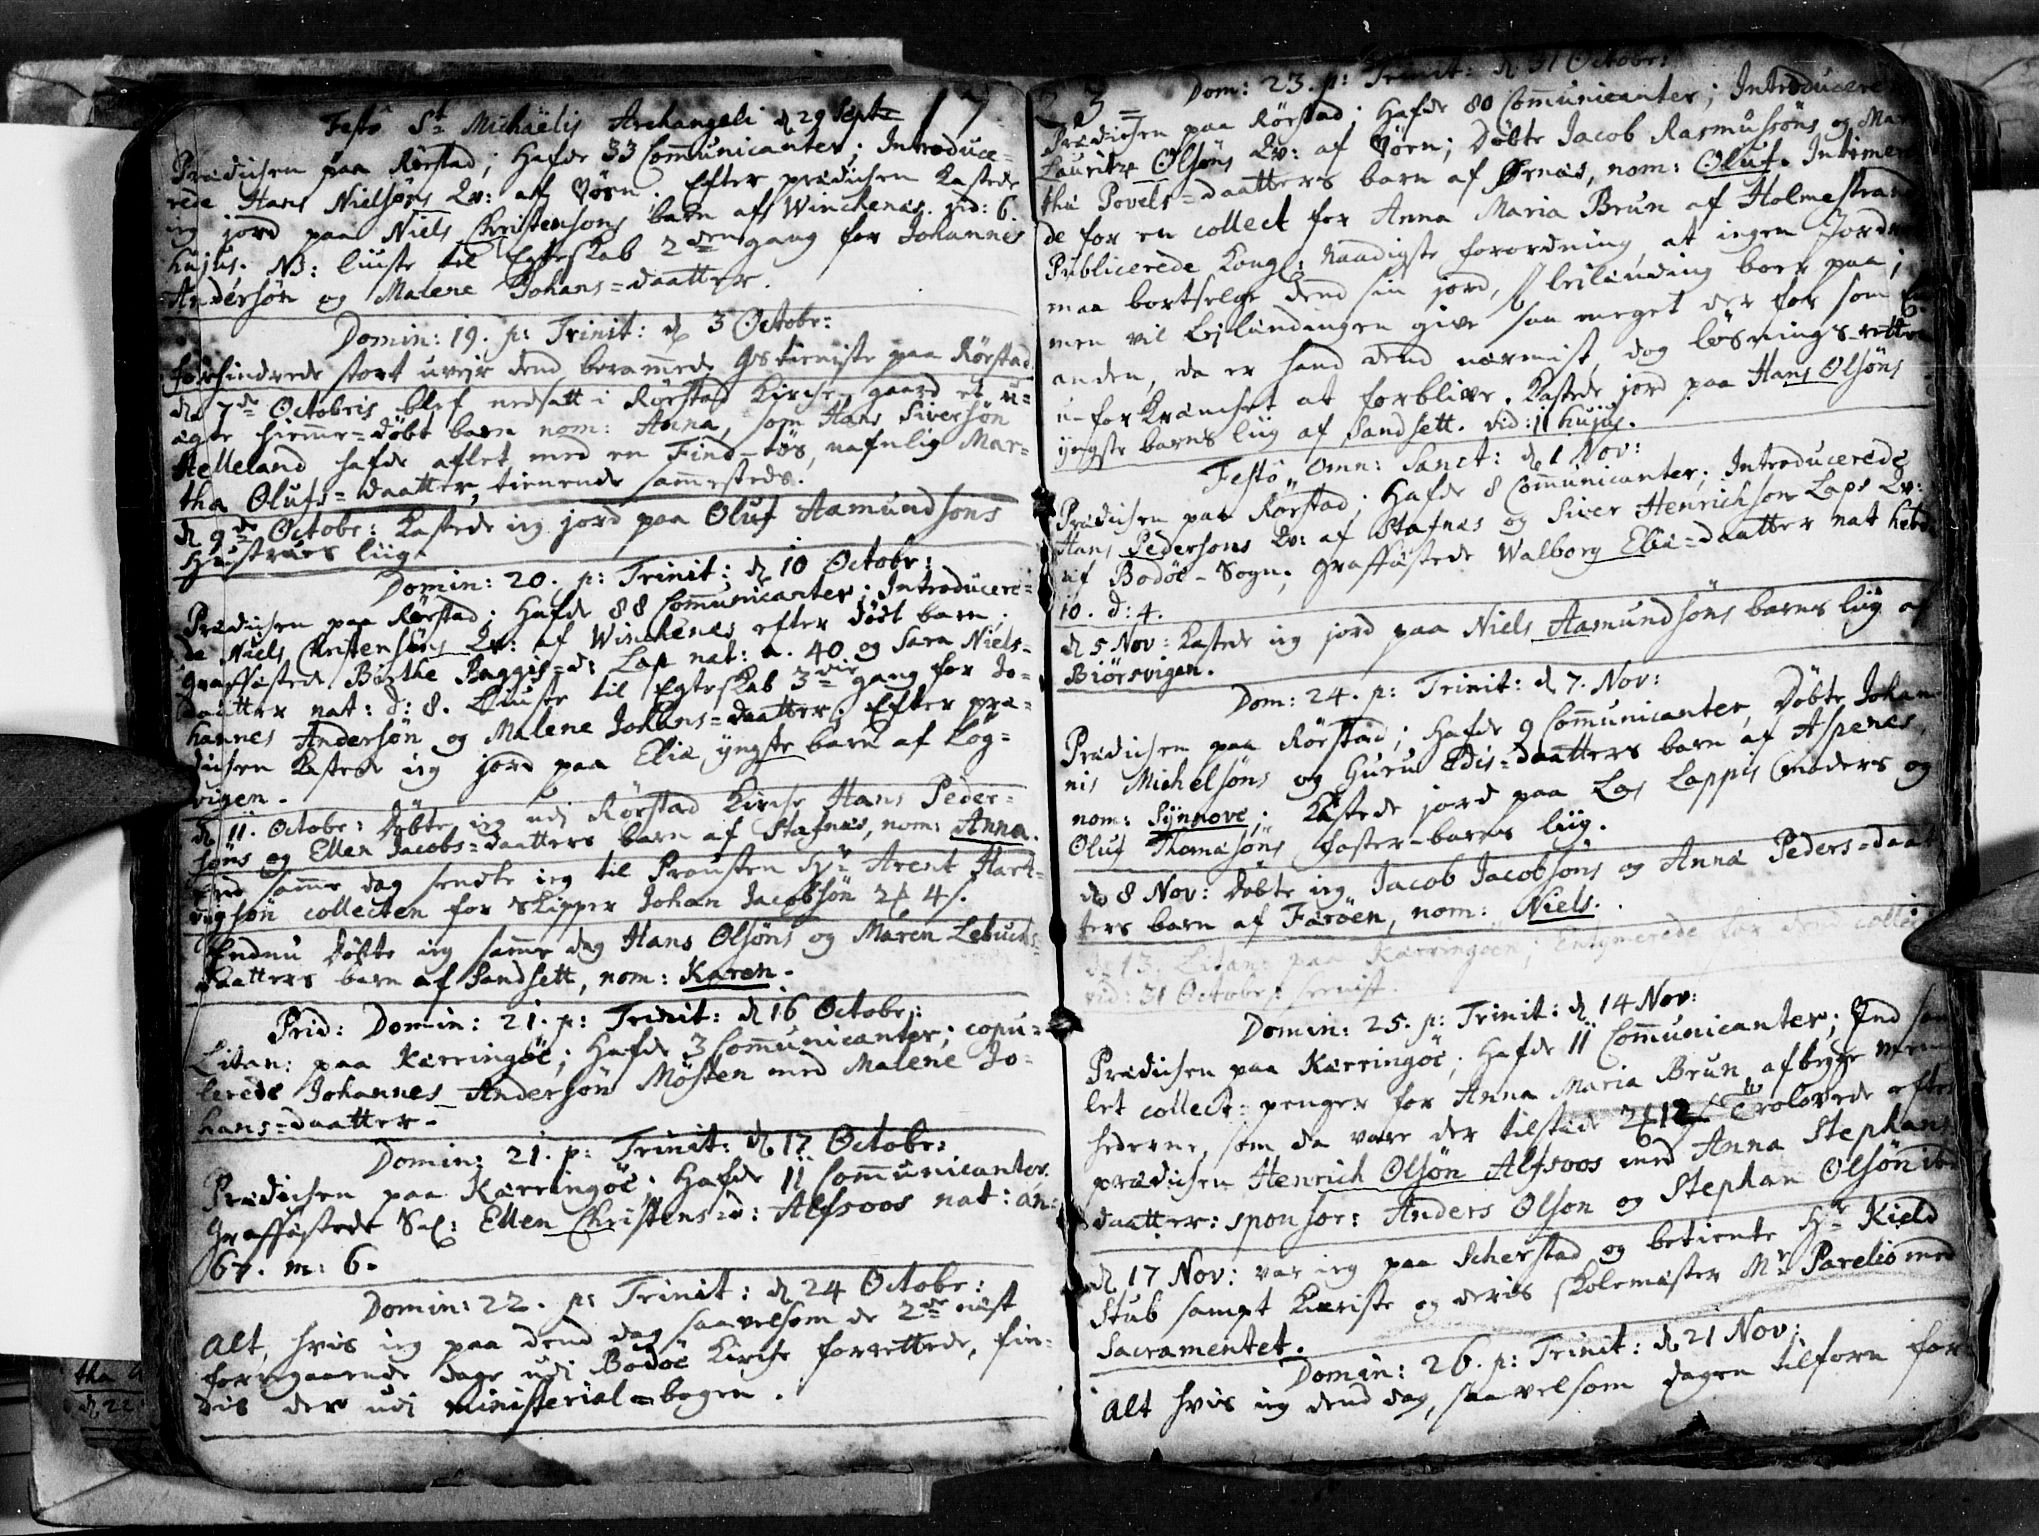 Festo St Michaëlis Archangeli d 29 Septr 17
Prædichen paa Rørstad; Hafde 33 Communicanter; Introduce=
rede Hans Nielsøns Qv: af Vørn. Efter prædichen kastede
ieg jord paa Niels Christensøns barn af Winchenæs. vid: 6.
hujus. NB: liuste til Egteskab 2den gang for Johannes
Andersøn og Malene Johans=daatter.
Domin: 19. p: Trinit: d 3 Octobr:
forhindrede stort uvejr dend berammede Gs tieniste paa Rørstad
da 7de Octobris blef nedsatt i Rørstad Kirche gaard et u=
ægte hiemme=døbt barn nom: Anna, som Hans Siversøn
Helleland hafde aflet med en Find-tøs, nafnlig Mar=
tha Olufs=daatter, tienende sammesteds.
d 9de Octobr: kastede ieg jord paa Oluf Aamundsøns
Hustrues liig.
Domin: 20. p: Trinit: d 10 Octobr:
Prædichen paa Rørstad; Hafde 88 Communicanter; Introducere=
de Niels Christensøns Qv: af Winchenes efter dødt barn;
Graffæstede Birthe Baggis=d: Lap nat: a. 40 og Sara Niels=
daatter nat: d: 8. Liuste til Egteskab 3die gang for Jo=
hannes Andersøn og Malene Johans=daatter; Efter præ=
dichen kastede ieg jord paa Eliæ yngste barn af Løg=
vigen.
d 11. Octobr: Døbte ieg udi Rørstad Kirche Hans Peder=
søns og Ellen Jacobs=daatters barn af Stafnæs, nom: Anna.
End samme dag sendte ieg til Prousten Hr Arent Hart=
vigsøn collecten for Skipper Johan Jacobsøn 2 4 s.
Endnu døbte ieg samme dag Hans Olsøns og Maren Lebuchs=
daatters barn af Sandsett, nom: Karen.
Prid: Domin: 21. p: Trinit: d 16 Octobr:
Litan: paa Kærringøe; Hafde 3 Communicanter; copu=
lerede Johannes Andersøn Møsten med Malene Jo=
hans=daatter.
Domin: 21. p: Trinit: d 17 Octobr:
Prædichen paa Kærringøe; Hafde 11 Communicanter.
Graffæstede Sal: Ellen Christens=d: Alfsoos nat: an:
67. m: 6.
Domin: 22. p: Trinit: d 24 Octobr:
Alt, hvis ieg paa dend dag saavelsom de 2de nest
foregaaende dage udi Bodøe Kirche forrettede, fin=
dis der udi ministerial=bogen.
Dom: 23. p: Trinit: d 31 Octobr:
Prædichen paa Rørstad; Hafde 80 Communicanter; Introducerede
Lauritz Olsøns Qv: af Vørn; Døbte Jacob Rasmussøns og Mar
thæ Povels=daatters barn af Ørnæs, nom: Oluf. Intimere
de for en collect for Anna Maria Brun af Holmestrand
Publicerede Kongl: Naadigste forordning, at ingen Jordr
maa bortselge dend sin jord, leilænding boer paa;
men vil Lejlændingen give saa meget der for som en
anden, da er hand dend nærmist, dog løsnings-retten
u=forkræncket at forblive. Kastede jord paa Hans Olsøns
yngste barns liig af Sandsett. vid: 11 hujus.
Festo Omn: Sanct: d 1 Nov:
Prædichen paa Rørstad; Hafde 8 Communicanter; Introducerede
Hans Pedersøns Qv: af Stafnæs og Siver Henrichsøns Laps Qv:
af Bodøe-Sogn. Graffæstede Walborg Eliæ=daatter nat hebd:
10. d: 4.
d 5 Nov: kastede ieg jord paa Niels Aamundsøns barns liig af
Biørsvigen.
Dom: 24. p: Trinit: d 7. Nov:
Prædichen paa Rørstad; Hafde 9 Communicanter, Døbte Johan
nis Michelsøns og Guru Edis=daatters barn af Aspenes,
nom: Synnove; Kastede jord paa Las Lappis moders og
Oluf Thomæsøns foster-barns liig.
d 8 Nov: Døbte ieg Jacob Jacobsøns og Annæ Peders=daat
ters barn af Færøen, nom: Niels.
d 13. Litan: paa Kærringøen; Intimerede for dend collect
vid: 31 Octobr: sernist.
Domin: 25. p: Trinit: d 14 Nov:
Prædichen paa Kærringøe; Hafde 11 Communicanter; Ind sam
let collect=penger for Anna Maria Brun af byge mænd
hederne, som da vare der tilstæde 2 12 s Trolovede efter
prædichen Henrich Olsøn Alfsoos med Anna Stephans
daatter: sponsor: Anders Olsøn og Stephan Olsøn ibi
d 17 Nov: var ieg paa Scherstad og betiente Hr Kield
Stub sampt Kieriste og deris skolemester Mr Parelio med
Sacramentet.
Domin: 26. p: Trinit: d 21 Nov:
Alt hvis ieg dend dag, saavelsom dagen tilforn for